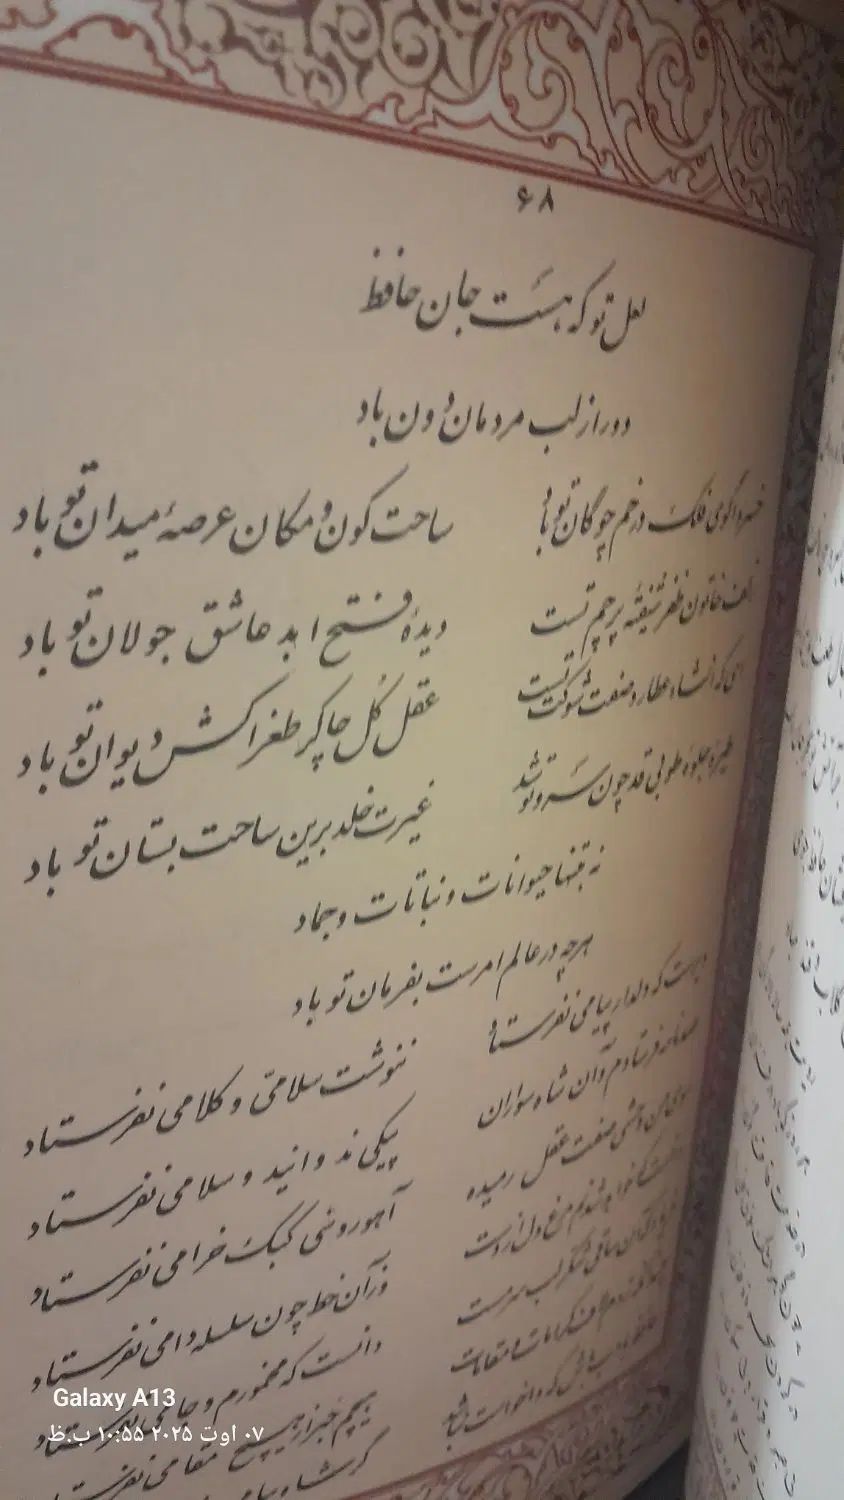 ۶۸
لعل تو که هست جان حافظ
دور از لب مردمان دون باد
خسروا گوی فلک در خم چوگان تو باد
ساحت کون و مکان عرصهٔ میدان تو باد
زلف خاتون ظفر شیفتهٔ پرچم تست
دیدهٔ فتح ابد عاشق جولان تو باد
ای که انشاء عطارد صفت شوکت تست
عقل کل چاکر طغراکش دیوان تو باد
طیرهٔ جلوهٔ طوبی قد چون سرو تو شد
غیرت خلد برین ساحت بستان تو باد
نه تنها حیوانات و نباتات و جماد
هرچه در عالم امرست بفرمان تو باد
دیرست که دلدار پیامی نفرستاد
ننوشت سلامی و کلامی نفرستاد
صد نامه فرستادم و آن شاه سواران
پیکی ندوانید و سلامی نفرستاد
سوی من وحشی صفت عقل رمیده
آهو روشی کبک خرامی نفرستاد
دانست که خواهد شدنم مرغ دل از دست
وز آن خط چون سلسله دامی نفرستاد
فریاد که آن ساقی شکر لب سرمست
دانست که مخمورم و جامی نفرستاد
لاف کرامات و مقامات
هیچم خبر از هیچ مقامی نفرستاد
حافظ که واخواست نباشد
گر شاه
Galaxy A13
۰۷ اوت ۲۰۲۵ ۱۰:۵۵ ب.ظ